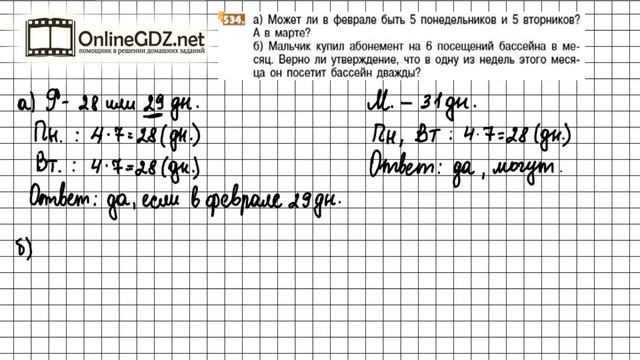 OnlineGDZ.net
ПОМОЩНИК В РЕШЕНИИ ДОМАШНИХ ЗАДАНИЙ
534. а) Может ли в феврале быть 5 понедельников и 5 вторников?
А в марте?
б) Мальчик купил абонемент на 6 посещений бассейна в ме-
сяц. Верно ли утверждение, что в одну из недель этого меся-
ца он посетит бассейн дважды?
а) Ф - 28 или 29 дн.
Пн. : 4·7=28 (дн.)
Вт. : 4·7=28 (дн.)
Ответ: да, если в феврале 29 дн.
М. - 31 дн.
Пн, Вт : 4·7=28 (дн.)
Ответ: да, могут.
б)